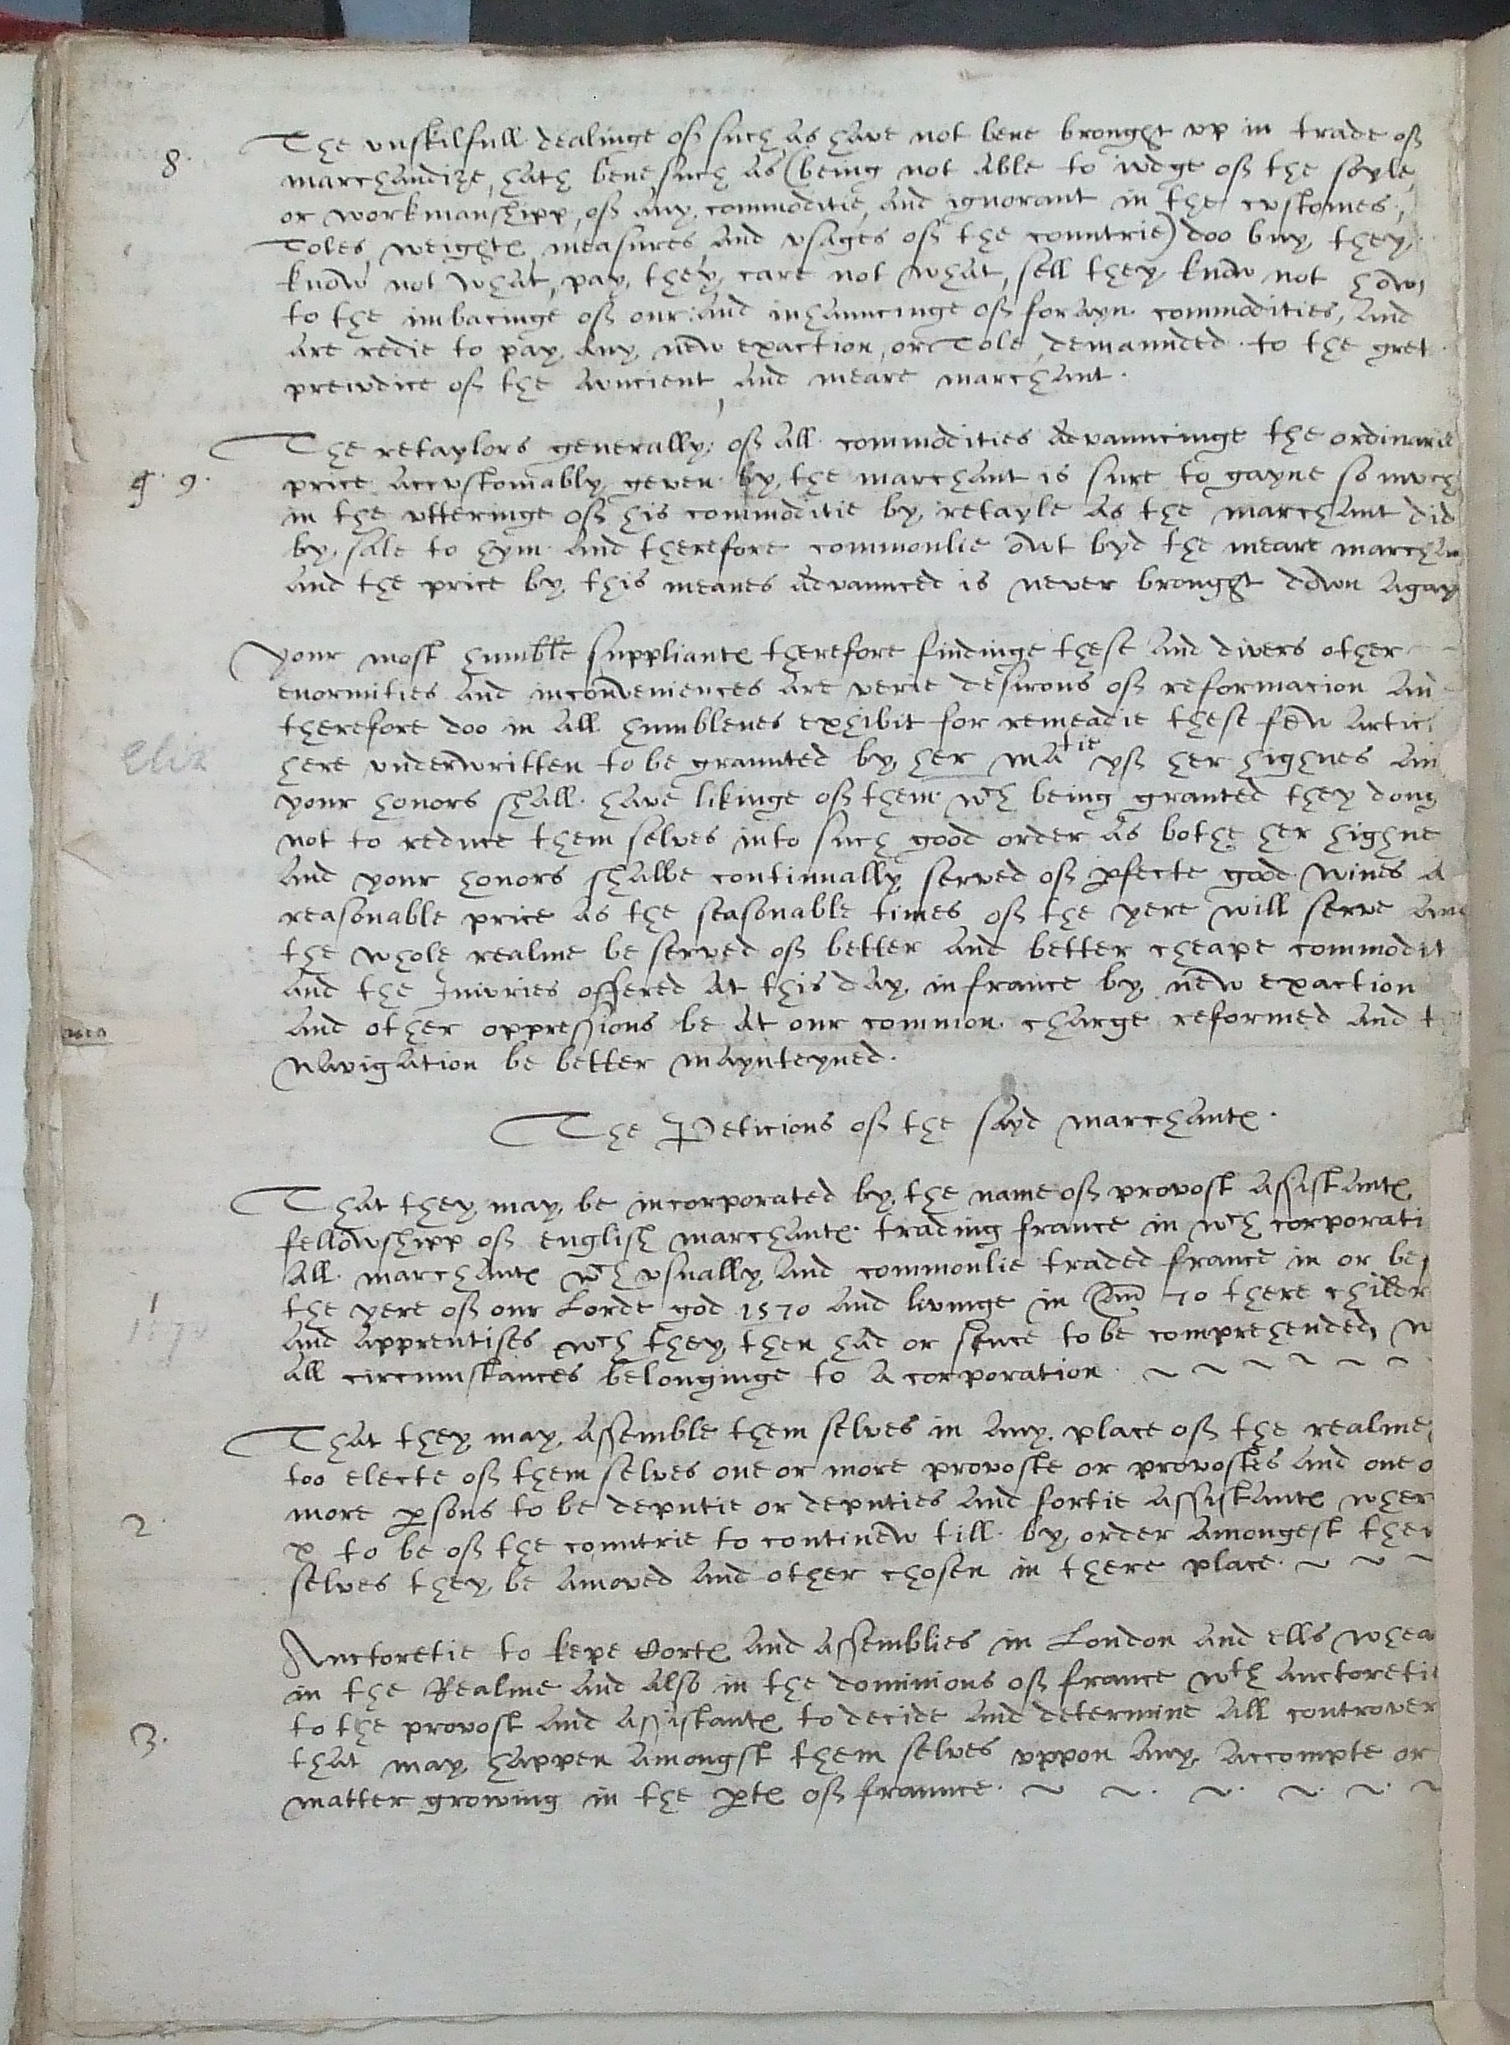 8. The vnskilfull dealinge off such as have not bene brought vp in trade off
marchandize, hath bene such as (being not able to iudge off the soyle
or workmanshipp, off any commoditie, and ignorant in the customes,
Toles, weightes, measures, and vsages off the countrie) doo buy, they
know not what, pay, they care not what, sell they know not how,
to the imbacinge off our and inhauncinge off forayn commodities, and
are redie to pay any new exaction, or Tole demaunded to the gret
preiudice off the auncient and meare marchant.
9. The retaylors generally off all commodities advauncinge the ordinarie
price accustomably geven by the marchant is sure to gayne so much
in the vtteringe off his commoditie by retayle as the marchant did
by sale to hym and therefore commonlie owt byd the meare marchan
and the price by this meanes advaunced is never brought down agay
Your most humble suppliantes therefore findinge these and divers other
enormities and inconveniences are verie desirous off reformacion an
therefore doo in all humblenes exhibit for remeadie these few artic
Eliz
here vnderwritten to be graunted by her Matie yff her highnes an
your honors shall have likinge off them wch being granted they doug
not to reduce them selves into such good order as bothe her highne
and your honors shalbe continually served off pfecte good wines a
reasonable price as the seasonable times off the yere will serve and
the whole realme be served off better and better cheape commodit
and the Iniuries offered at this day in france by new exaction
and other oppressions be at our common charge reformed and t
navigation be better maynteyned.
The Peticions off the sayd marchantes.
That they may be incorporated by the name off provost assistantes
fellowshipp off english marchantes trading france in wch corporati
all marchantes wch vsually and commonlie traded france in or be
1
1570
the yere off our Lorde god 1570 and livinge in Anno 70 there childer
and apprentises wch they then had or since to be comprehended, w
all circumstances belonginge to a corporation
That they may assemble them selves in any place off the realme
too electe off them selves one or more provoste or provostes and one o
2. more psons to be deputie or deputies and fortie assistantes wher
x to be off the countrie to continew till by order amongest them
selves they be amoved and other chosen in there place.
Auctoretie to kepe Cortes and assemblies in London and ells whea
in the Realme and also in the dominions off france wth auctoretie
3. to the provost and assistantes to decide and determine all controver
that may happen amongst them selves vppon any accompte or
matter growing in the ptes off fraunce.